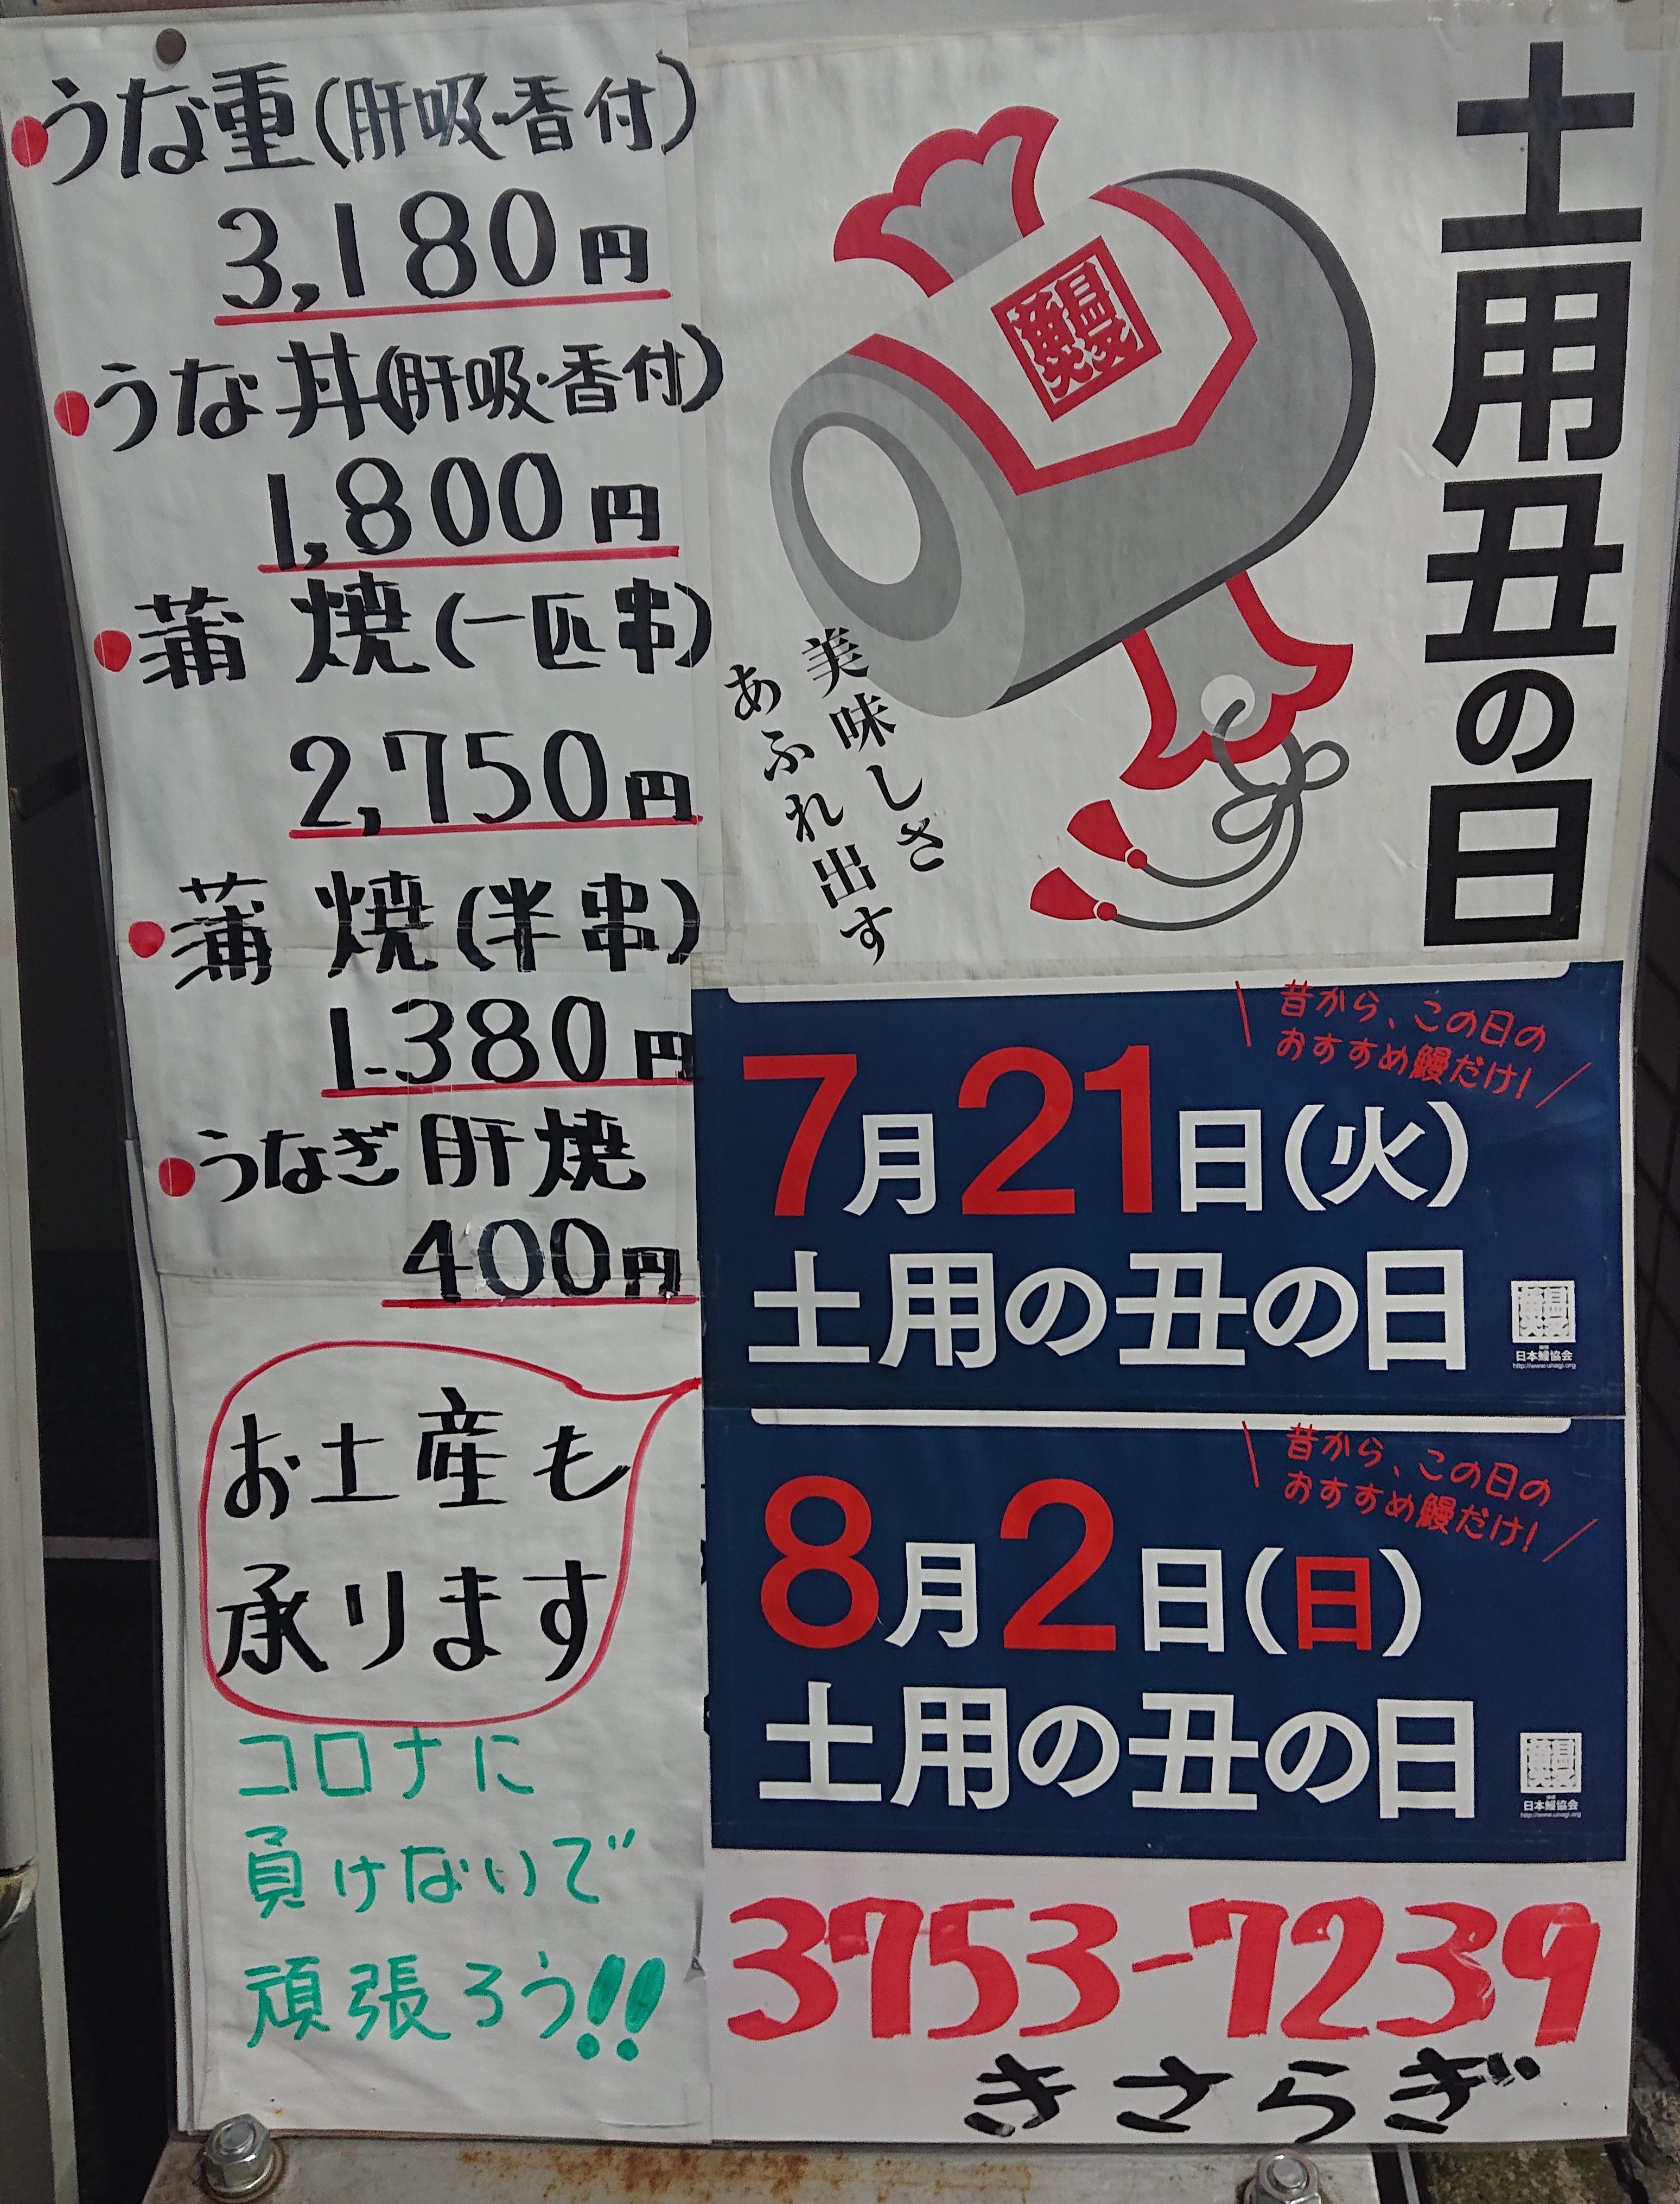 ●うな重(肝吸・香付)
3,180円
●うな丼(肝吸・香付)
1,800円
●蒲焼(一匹串)
2,750円
●蒲焼(半串)
1,380円
●うなぎ肝焼
400円
お土産も
承ります
コロナに
負けないで
頑張ろう!!
土用丑の日
美味しさ
あふれ出す
昔から、この日の
おすすめ鰻だけ!
7月21日(火)
土用の丑の日
日本鰻協会
http://www.unagi.org
昔から、この日の
おすすめ鰻だけ!
8月2日(日)
土用の丑の日
日本鰻協会
http://www.unagi.org
3753-7239
きさらぎ